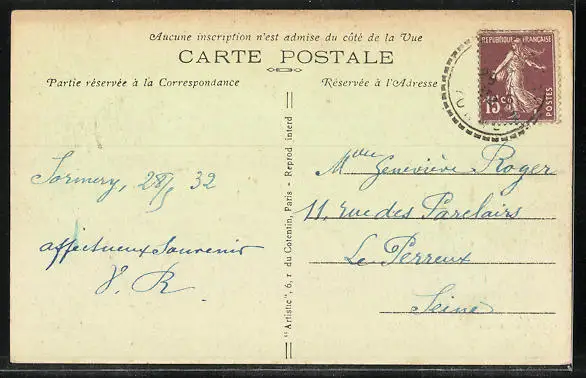 Aucune inscription n'est admise du côté de la Vue
CARTE POSTALE
Partie réservée à la Correspondance
Réservée à l'Adresse
RÉPUBLIQUE FRANÇAISE
15c
POSTES
Sormery, 28/5 32
affectueux Souvenir
V. R
"Artistic", 6, r du Cotentin, Paris - Reprod interd
Mlle Geneviève Roger
11, rue des Parclairs
Le Perreux
Seine